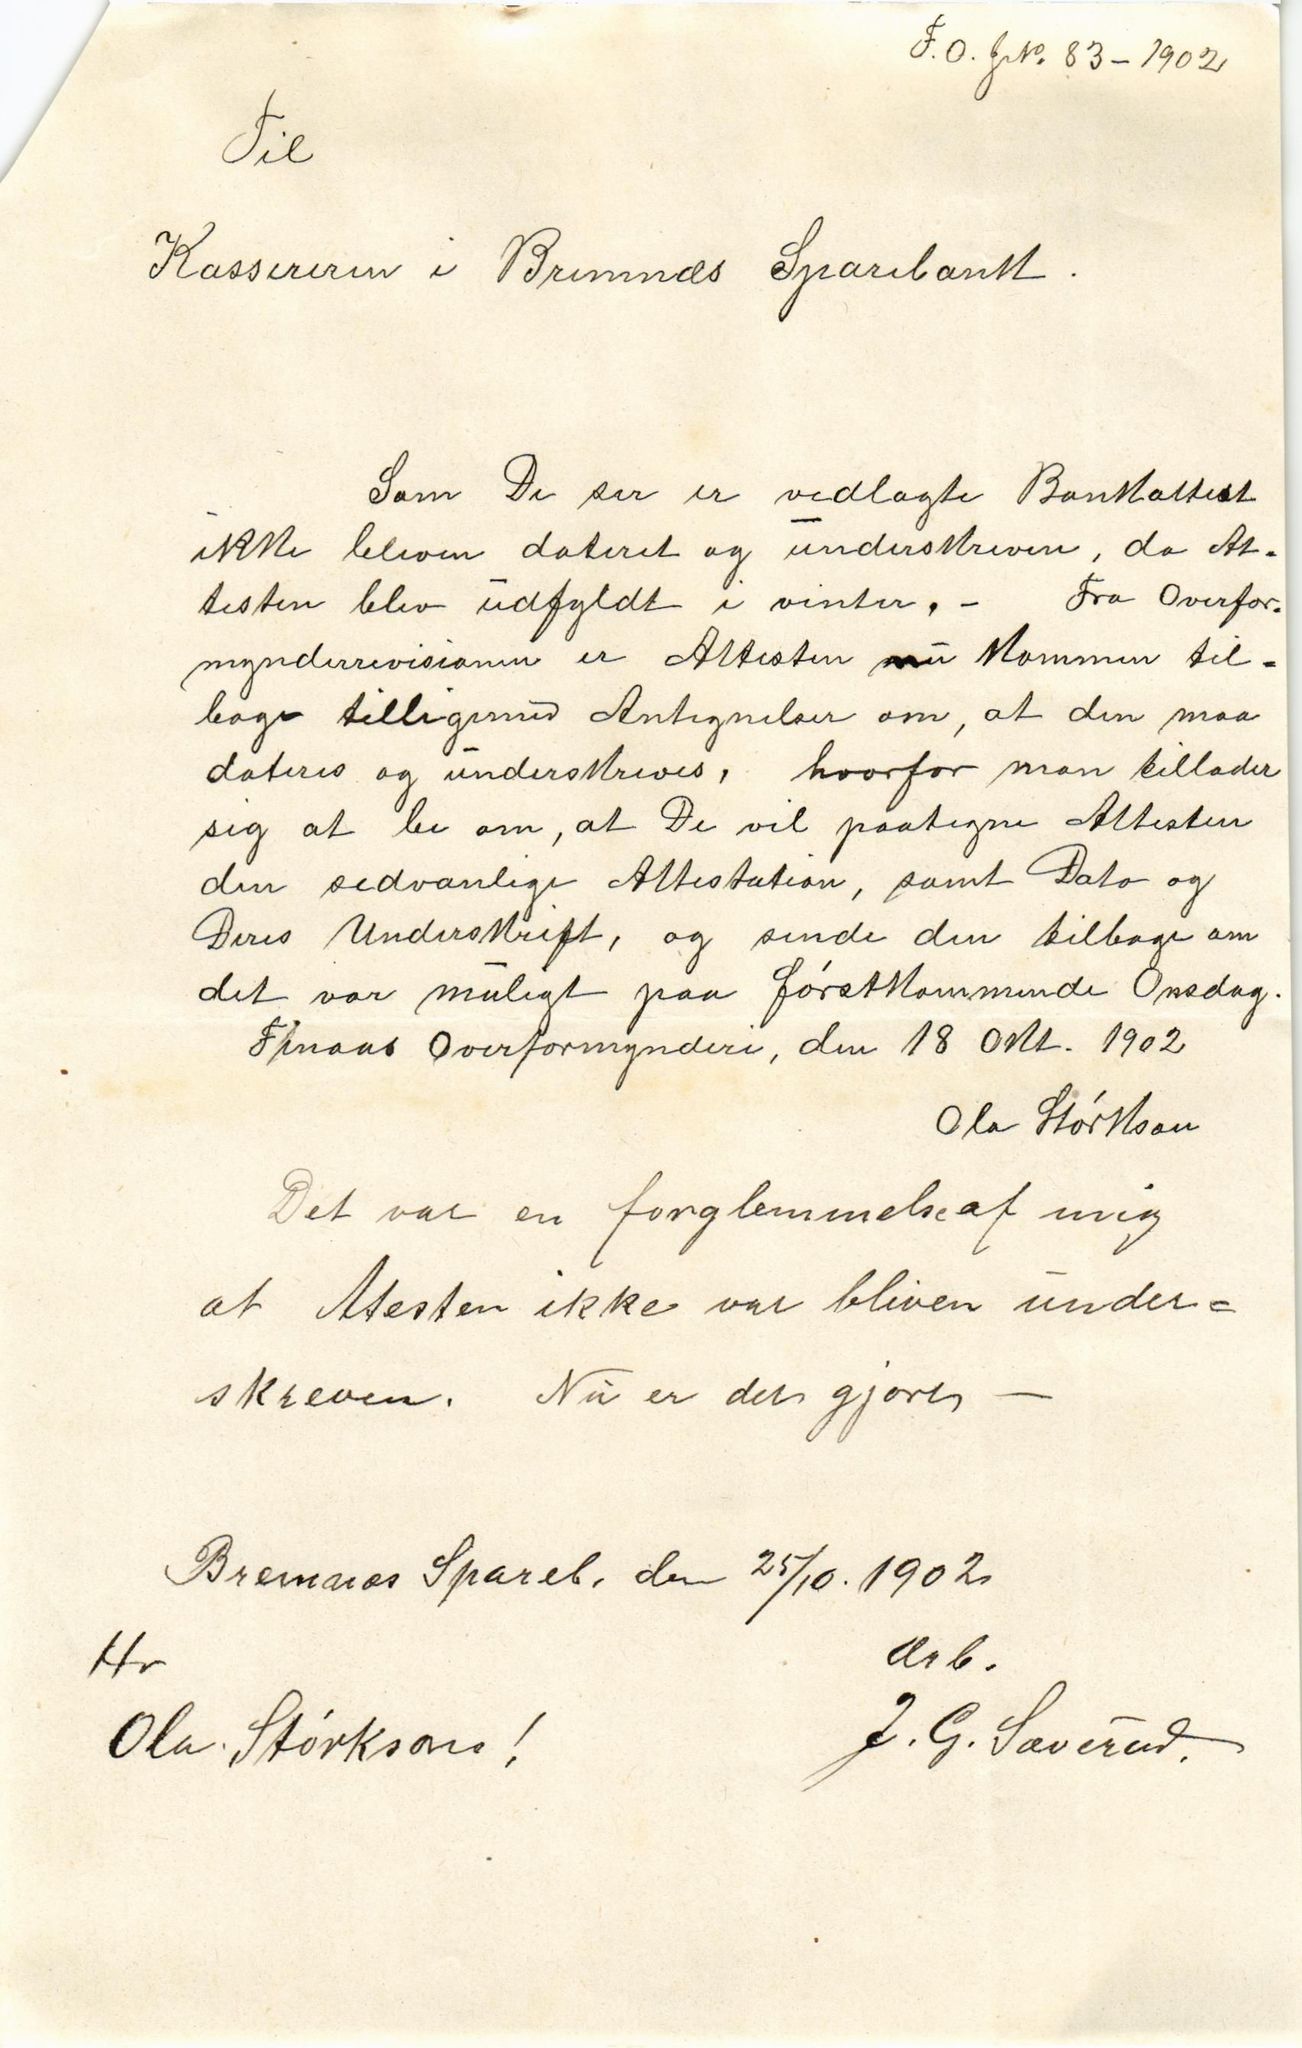 F.O. J.No. 83 – 1902
Til
Kassereren i Bremnæs Sparebank.
Som De ser er vedlagte Bankattest
ikke bleven dateret og underskreven, da At-
testen blev udfyldt i vinter. – Fra Overfor-
mynderrevisionen er Attesten nu kommen til-
bage tilligemed Antegnelser om, at den maa
dateres og underskreves, hvorfor man tillader
sig at be om, at De vil paategne Attesten
den sedvanlige Attestation, samt Dato og
Deres Underskrift, og sende den tilbage om
det var muligt paa førstkommende Onsdag.
Finaas Overformynderi, den 18 Okt. 1902
Ola Størkson
Det var en forglemmelse af mig
at Atesten ikke var bliven under=
skreven. Nu er det gjort –
Bremnæs Spareb. den 25/10. 1902
Hr Ærb.
Ola Størkson! J. G. Sæverud.